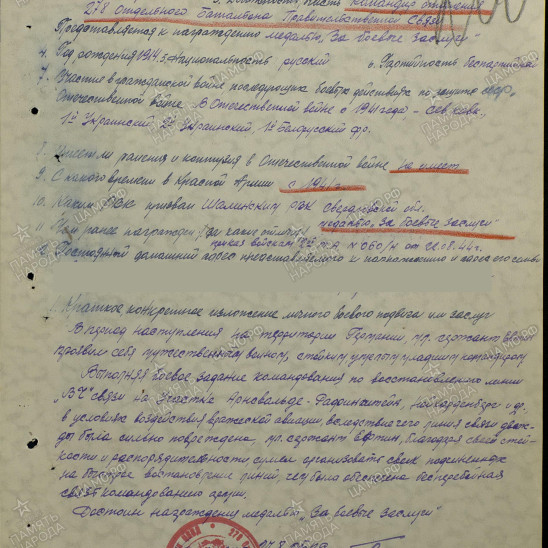 3. Должность, часть командир отделения
278 Отдельного Батальона Правительственной Связи
Представляется к награждению медалью „За боевые заслуги"
4. Год рождения 1914 5. Национальность русский 6. Партийность беспартийный
7. Участие в гражданской войне последующих боевых действиях по защите СССР,
Отечественной войне. В Отечественной войне с 1941 года - Сев. Кавк,
1й Украинский, Украинский, 1й Белорусский фр.
8. Имеет ли ранения и контузии в Отечественной войне не имеет
9. С какого времени в Красной Армии с 1941 г.
10. Каким РВК призван Шалинским РВК Свердловской обл.
11. Чем ранее награжден, за какие отличия медалью „За боевые заслуги"
приказ войскам ТА № 060/Н от 44 г.
12. Постоянный домашний адрес представляемого к награждению и адрес его семьи
1. Краткое конкретное изложение личного боевого подвига или заслуг
В период наступления на территории Германии, мл. сержант
проявил себя мужественным воином, стойким умелым младшим командиром
Выполняя боевое задание командования по восстановлению линии
„ВЧ" связи на участке и др.
в условиях воздействия вражеской авиации, вследствие чего линия связи дваж-
ды была сильно повреждена, мл. сержант благодаря своей стой-
кости и распорядительности, сумел организовать своих подчиненных
на быстрое восстановление линий, чем была обеспечена бесперебойная
связь командованию армии.
Достоин награждения медалью „За боевые заслуги"
ПАМЯТЬ НАРОДА
ЦАМО.РФ